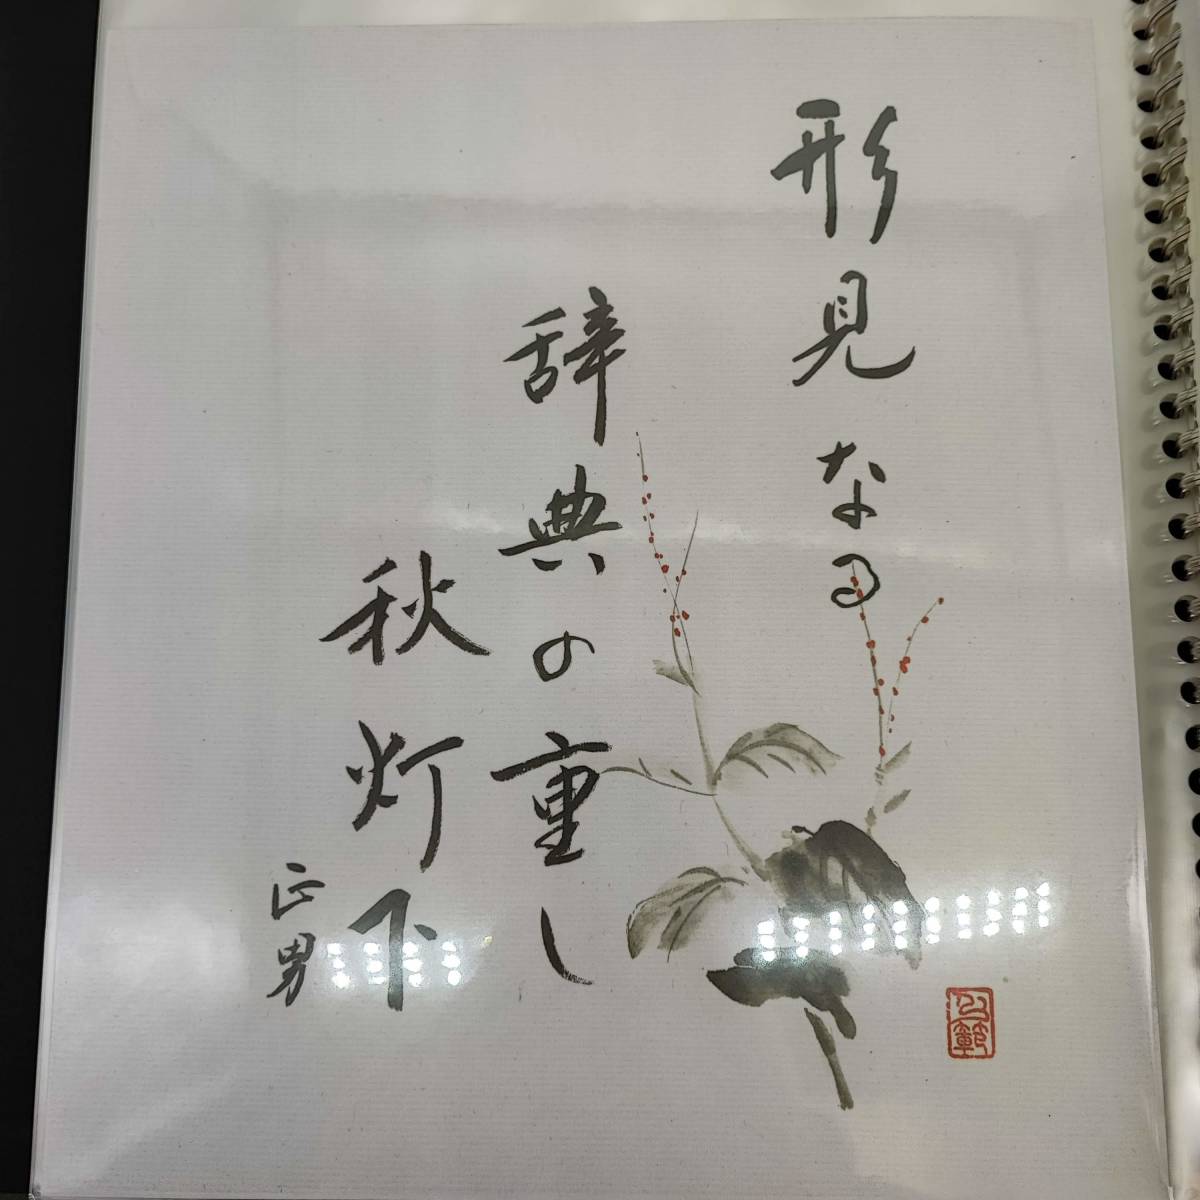 形見なる
辞典の重し
秋灯下
正男